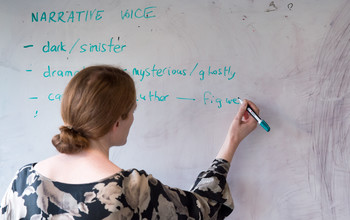 NARRATIVE VOICE
– dark/sinister
– mysterious/ghostly
– author — figure